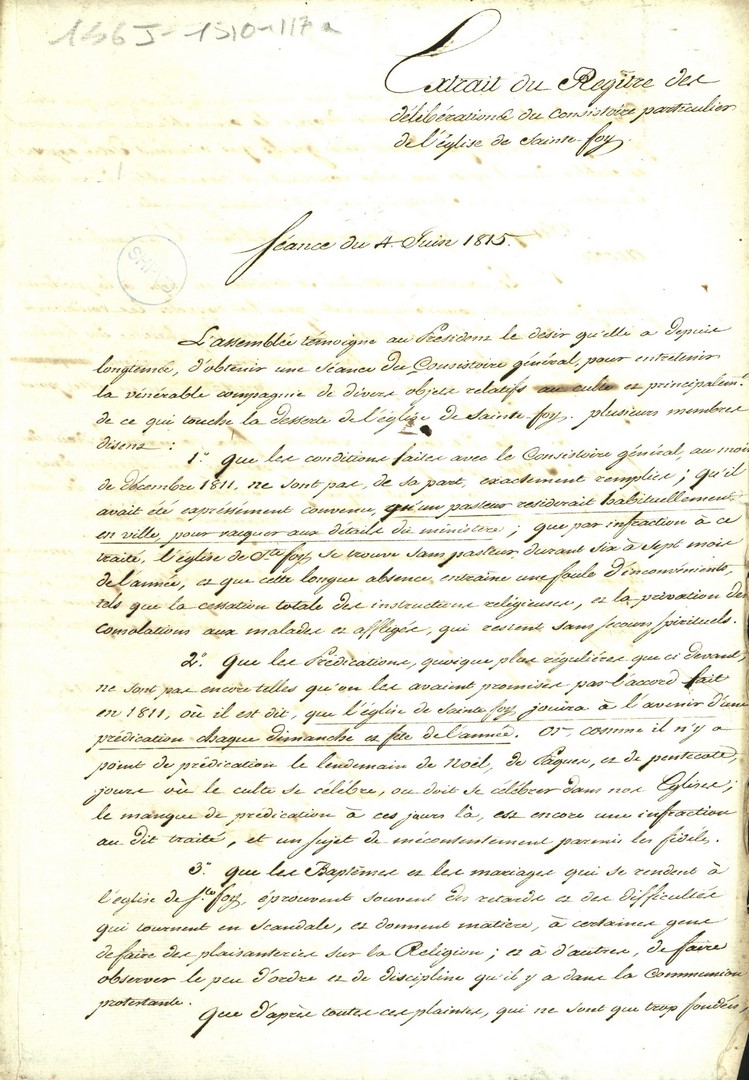 166J-1310-117a
Extrait du Regître des
délibérations du consistoire particulier
de l'église de Sainte-foy.
Séance du 4. Juin 1815.
SHPVD
L'assemblée témoigne au Président le désir qu'elle a depuis
longtems, d'obtenir une séance du Consistoire général, pour entretenir
la vénérable compagnie de divers objets relatifs au culte et principalemt.
de ce qui touche la desserte de l'église de Sainte-foy. plusieurs membres
disent :
1.° que les conditions faites avec le Consistoire général, au mois
de décembre 1811, ne sont pas, de sa part, exactement remplies ; qu'il
avait été expressément convenu, qu'un pasteur residerait habituellement
en ville, pour vacquer aux détails du ministère ; que par infraction à ce
traité, l'église de Ste foy se trouve sans pasteur, durant six à sept mois
de l'année, et que cette longue absence entraîne une foule d'inconvéniens,
tels que la cessation totale des instructions religieuses, et la privation des
consolations aux malades et affligés, qui restent sans secours spirituels.
2.° que les Prédications, quoique plus régulières que ci devant,
ne sont pas encore telles qu'on les avaient promises par l'accord fait
en 1811, où il est dit, que l'église de Sainte foy, jouira à l'avenir d'une
prédication chaque dimanche et fête de l'année. Or, comme il n'y a
point de prédication le lendemain de Noël, de Pâques, et de pentecote,
jours où le culte se célèbre, ou doit se célébrer dans nos Eglises ;
le manque de prédication à ces jours là, est encore une infraction
au dit traité, et un sujet de mécontentement parmis les fidèles.
3.° que les Baptêmes et les mariages qui se rendent à
l'église de Ste foy, éprouvent souvent des retards et des difficultés
qui tournent en scandale, et donnent matière, à certaines gens
de faire des plaisanteries sur la Religion ; et à d'autres, de faire
observer le peu d'ordre et de discipline qu'il y a dans la Communion
protestante.
Que d'après toutes ces plaintes, qui ne sont que trop fondées,